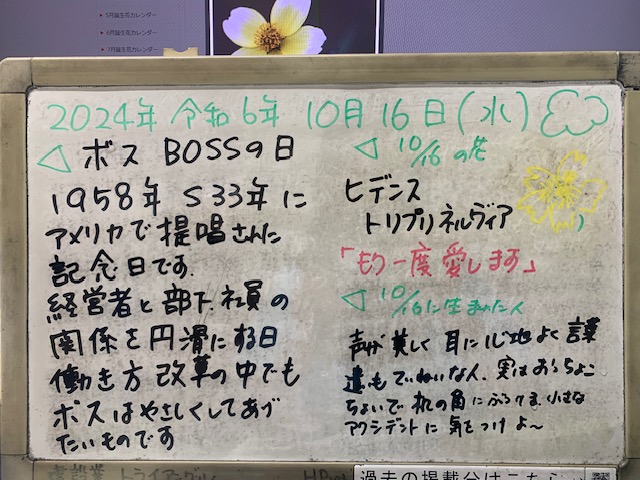 5月誕生花カレンダー
6月誕生花カレンダー
7月誕生花カレンダー
2024年 令和6年 10月16日(水)
ボス BOSSの日
1958年 S33年に
アメリカで提唱された
記念日です.
経営者と部下.社員の
関係を円滑にする日
働き方改革の中でも
ボスはやさしくしてあげ
たいものです
10/16の花
ヒデンス
トリプリネルヴィア
「もう一度愛します」
10/16に生まれた人
声が美しく耳に心地よく言葉
遣もていねいな人.実はおっちょこ
ちょいで机の角にぶつける.小さな
アクシデントに気をつけよ〜
過去の掲載分はこちら